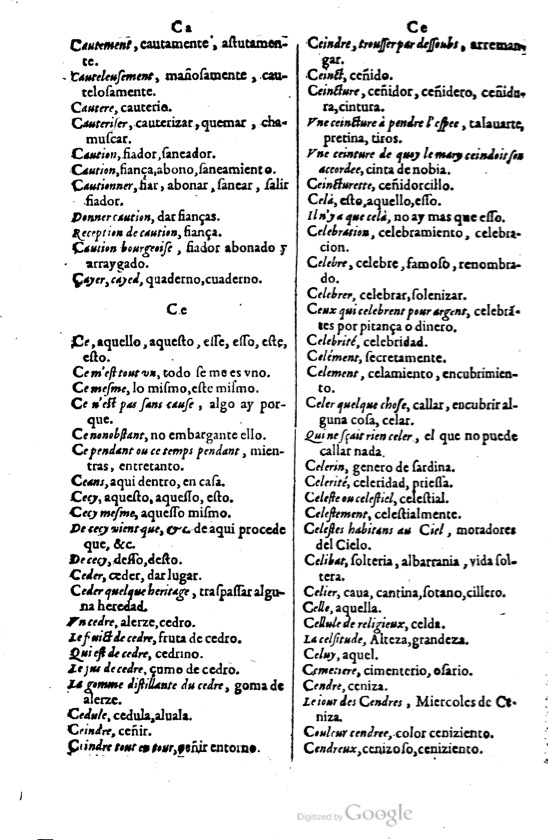 Ca
Cautement, cautamente, aſtutamen-
te.
Cauteleuſement, mañoſamente, cau-
teloſamente.
Cautere, cauterio.
Cauteriſer, cauterizar, quemar, cha-
muſcar.
Caution, fiador, ſaneador.
Caution, fiança, abono, ſaneamiento.
Cautionner, fiar, abonar, ſanear, ſalir
fiador.
Donner caution, dar fianças.
Reception de caution, fiança.
Caution bourgeoiſe, fiador abonado y
arraygado.
Çayer, cayed, quaderno, cuaderno.
Ce
Ce, aquello, aqueſto, eſſe, eſſo, eſte,
eſto.
Ce m'eſt tout vn, todo ſe me es vno.
Ce meſme, lo miſmo, eſte miſmo.
Ce n'eſt pas ſans cauſe, algo ay por-
que.
Ce nonobſtant, no embargante ello.
Ce pendant ou ce temps pendant, mien-
tras, entretanto.
Ceans, aqui dentro, en caſa.
Cecy, aqueſto, aqueſſo, eſto.
Cecy meſme, aqueſſo miſmo.
De cecy vient que, &c. de aqui procede
que, &c.
De cecy, deſſo, deſto.
Ceder, ceder, dar lugar.
Ceder quelque heritage, traſpaſſar algu-
na heredad.
Vn cedre, alerze, cedro.
Le fruict de cedre, fruta de cedro.
Qui eſt de cedre, cedrino.
Le jus de cedre, çumo de cedro.
La gomme diſtillante du cedre, goma de
alerze.
Cedule, cedula, aluala.
Ceindre, ceñir.
Ceindre tout en tour, ceñir entorno.
Ce
Ceindre, trouſſer par deſſoubs, arreman-
gar.
Ceinct, ceñido.
Ceincture, ceñidor, ceñidero, ceñidu-
ra, cintura.
Vne ceincture à pendre l'eſpee, talauarte,
pretina, tiros.
Vne ceinture de quoy le mary ceindoit ſon
accordee, cinta de nobia.
Ceincturette, ceñidorcillo.
Celà, eſto, aquello, eſſo.
Il n'y a que celà, no ay mas que eſſo.
Celebration, celebramiento, celebra-
cion.
Celebre, celebre, famoſo, renombra-
do.
Celebrer, celebrar, ſolenizar.
Ceux qui celebrent pour argent, celebrã-
tes por pitança o dinero.
Celebrité, celebridad.
Celément, ſecretamente.
Celement, celamiento, encubrimien-
to.
Celer quelque choſe, callar, encubrir al-
guna coſa, celar.
Qui ne ſçait rien celer, el que no puede
callar nada.
Celerin, genero de ſardina.
Celerité, celeridad, prieſſa.
Celeſte ou celeſtiel, celeſtial.
Celeſtement, celeſtialmente.
Celeſtes habitans au Ciel, moradores
del Cielo.
Celibat, ſolteria, albarrania, vida ſol-
tera.
Celier, caua, cantina, ſotano, cillero.
Celle, aquella.
Cellule de religieux, celda.
La celſitude, Alteza, grandeza.
Celuy, aquel.
Cemetiere, cimenterio, oſario.
Cendre, ceniza.
Le iour des Cendres, Miercoles de Ce-
niza.
Couleur cendree, color ceniziento.
Cendreux, cenizoſo, ceniziento.
Digitized by Google